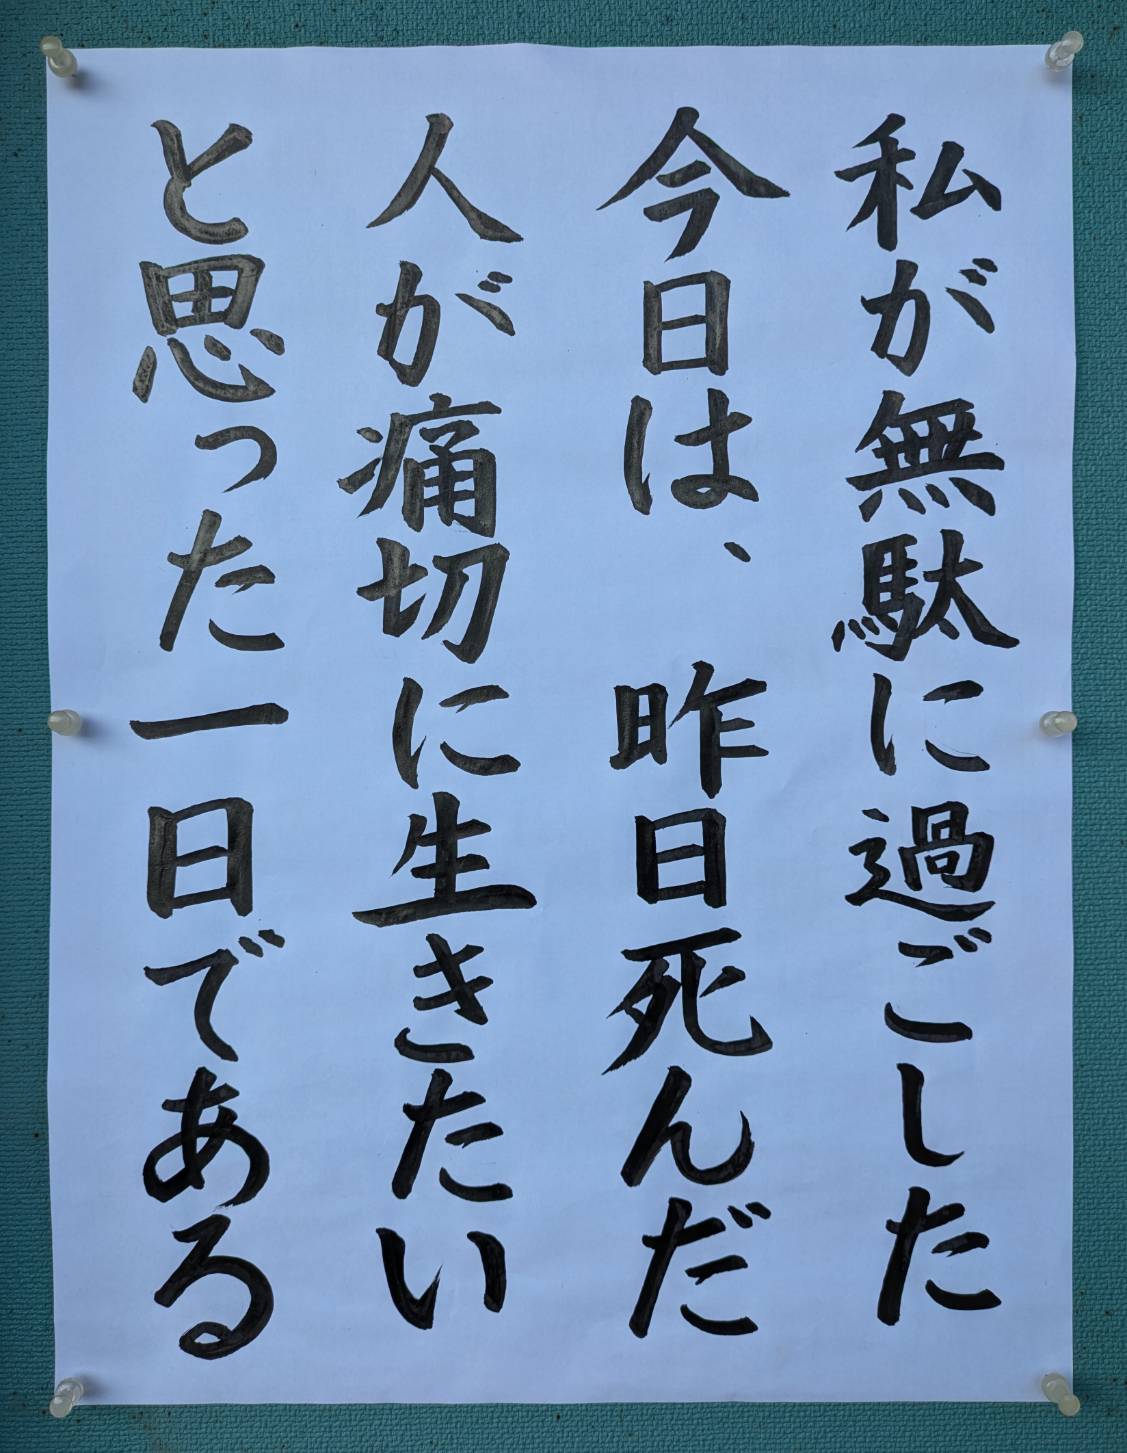 私が無駄に過ごした
今日は、昨日死んだ
人が痛切に生きたい
と思った一日である